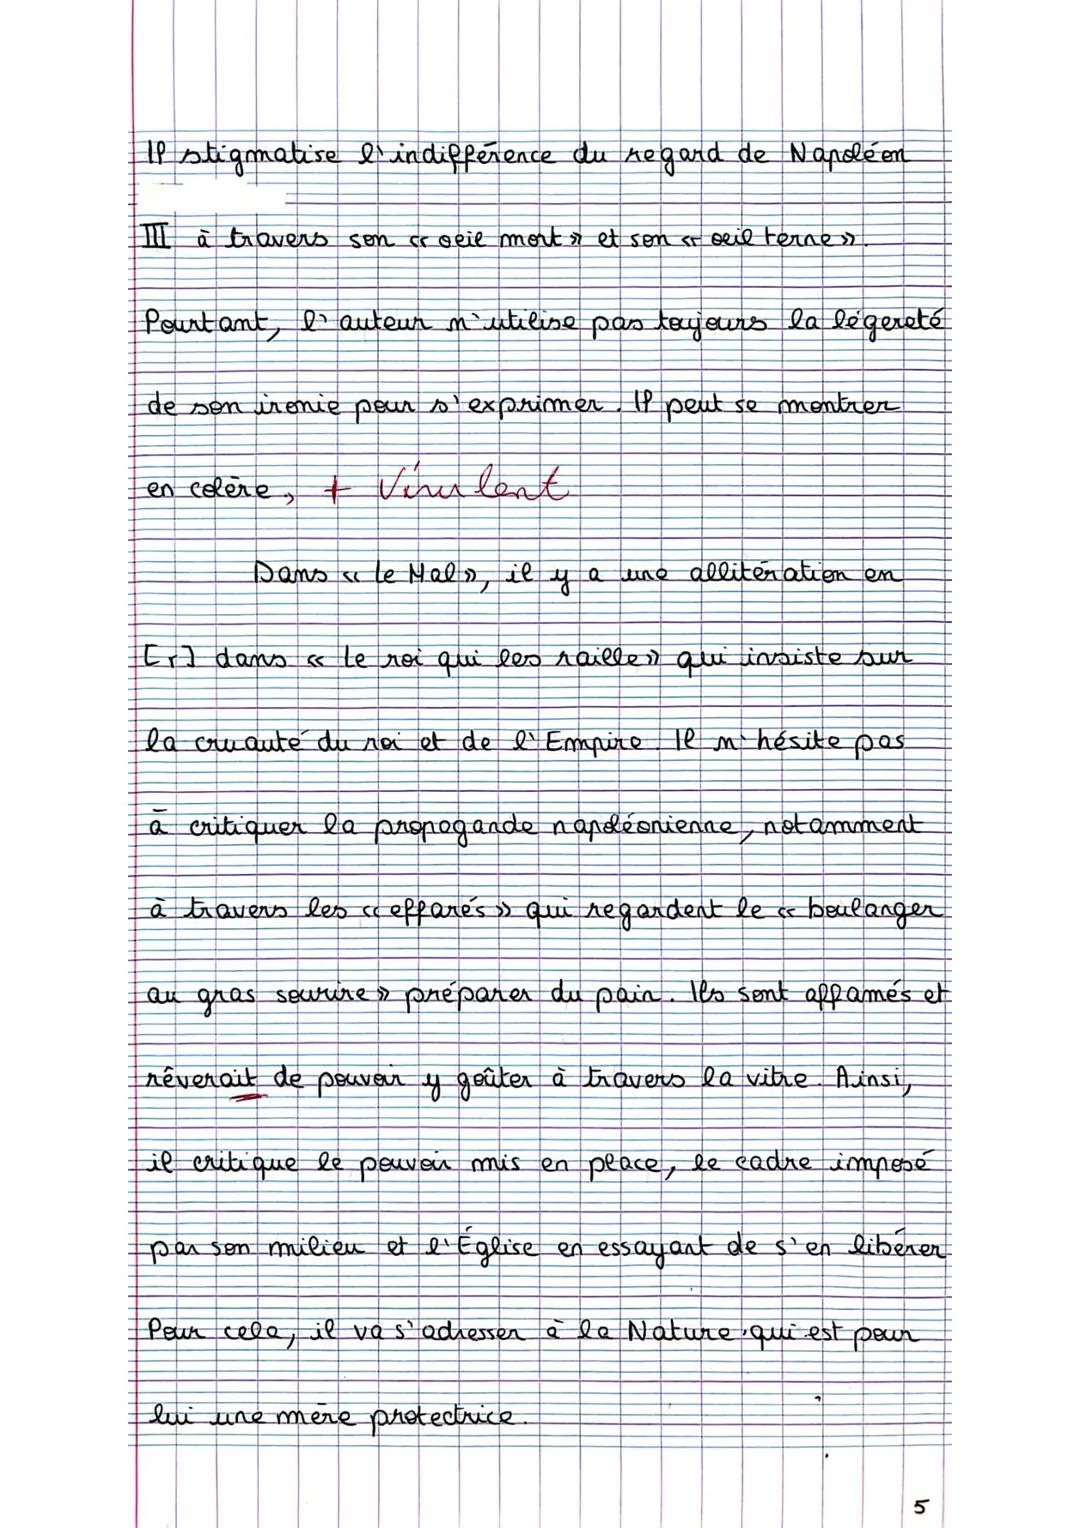 Il stigmatise l'indifférence du regard de Napoléon
III à travers son « oeil mort » et son « oeil terne ».
Pourtant, l'auteur n'utilise pas toujours la légereté
de son ironie pour s'exprimer. Il peut se montrer
en colère, + Virulent
Dans « Le Mal », il y a une allitération en
[r] dans « Le roi qui les raille » qui insiste sur
la cruauté du roi et de l'Empire. Il n'hésite pas
à critiquer la propagande napoléonienne, notamment
à travers les « effarés » qui regardent le « boulanger
au gras sourire » préparer du pain. Ils sont affamés et
rêverait de pouvoir y goûter à travers la vitre. Ainsi,
il critique le pouvoir mis en place, le cadre imposé
par son milieu et l'Église en essayant de s'en libérer
Pour cela, il va s'adresser à la Nature qui est pour
lui une mère protectrice.
5